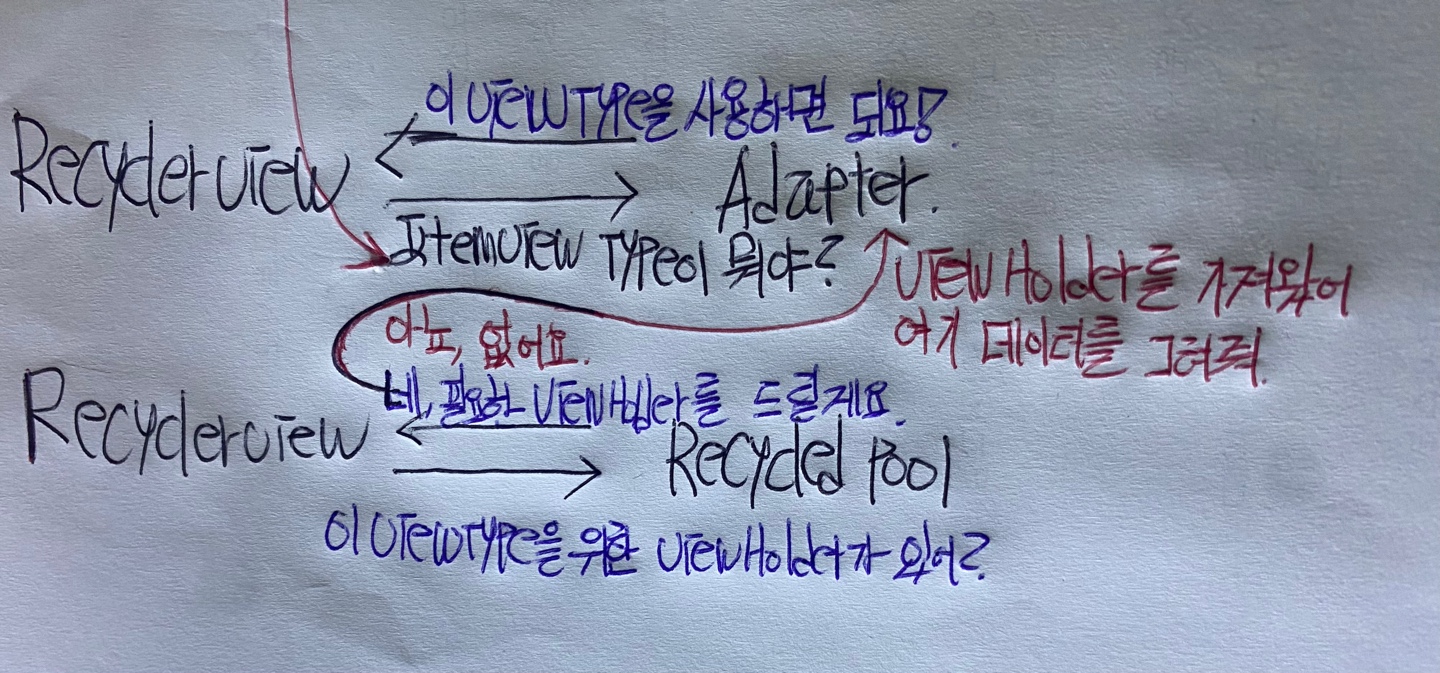 이 viewType을 사용하면 되요!
Recyclerview
Adapter.
Itemview Type이 뭐야?
viewHolder를 가져왔어
여기 데이터를 그려줘.
아뇨, 없어요.
네, 필요한 viewHolder를 드릴게요.
Recyclerview
Recycled Pool
이 viewType을 위한 viewHolder가 있어?